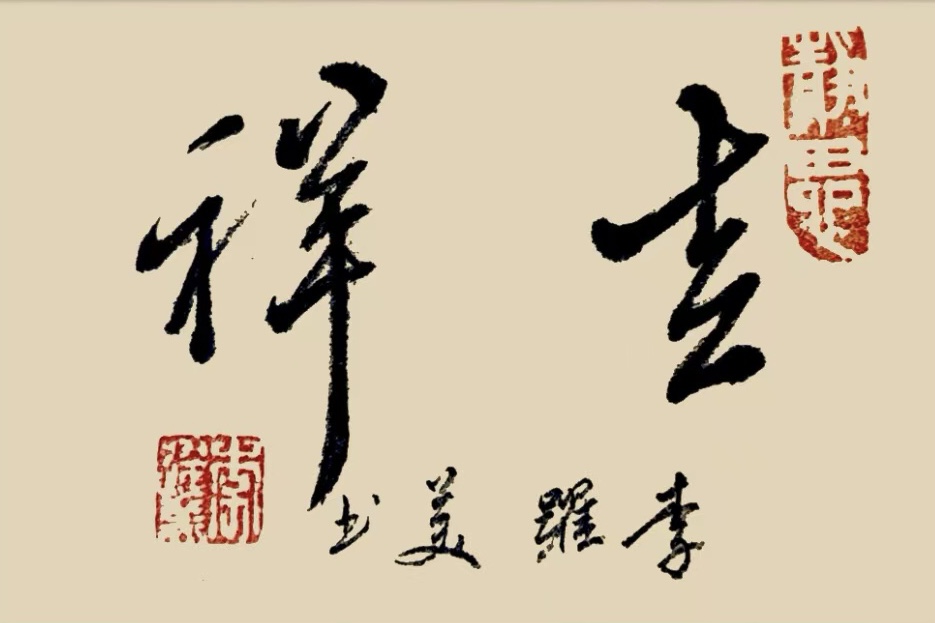 吉祥
李躍美书